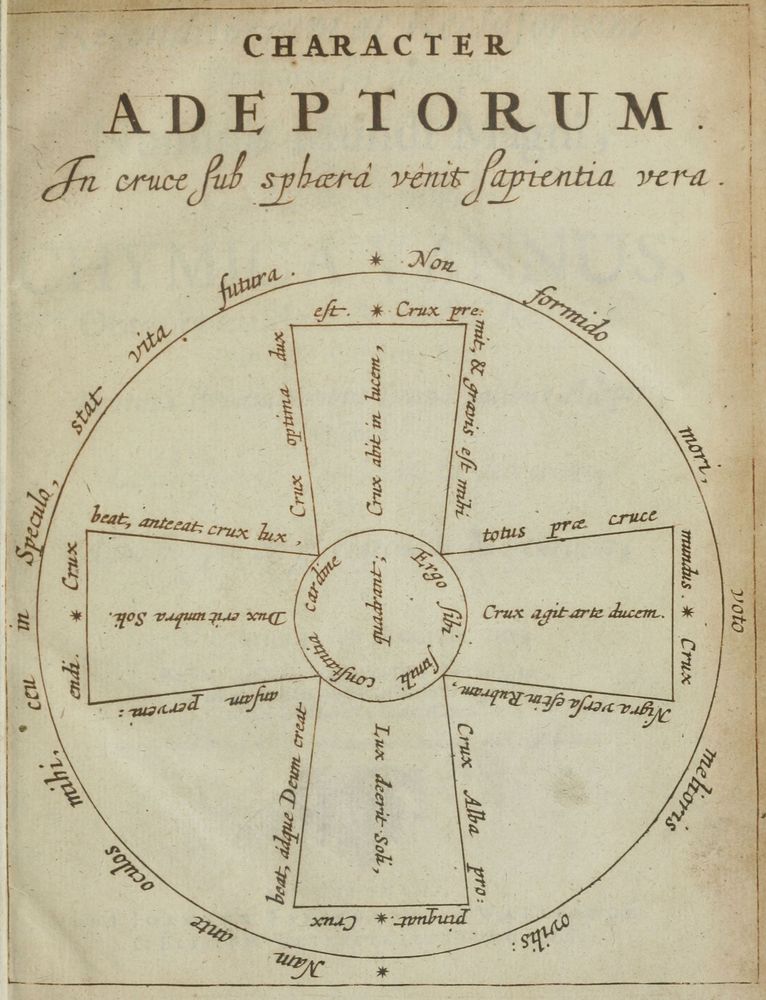 CHARACTER
ADEPTORUM.
In cruce sub sphærâ vênit sapientia vera.
* Non formido mori, voto melioris ovilis:
* Nam ante oculos mihi, ceu in Speculo, stat vita futura.
* Crux pre:
mit, & gravis est mihi
totus præ cruce
mundus. * Crux
Nigra versa est in Rubram,
Crux Alba pro:
pinquat. * Crux
beat, ádque Deum creat
ansam perveni:
endi. * Crux
beat, anteeat crux lux,
Crux optima dux
est.
Crux abit in lucem,
Crux agit arte ducem.
Lux deerit Soli,
Dux erit umbra Soli.
Ergo sibi fundi constantia cardine
quadrant: